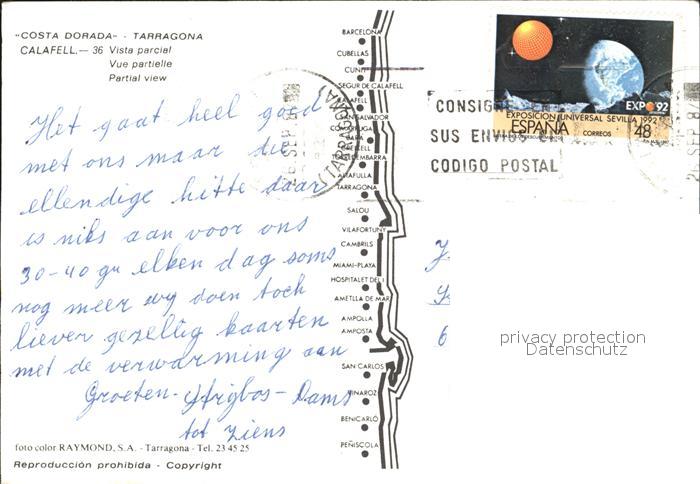 "COSTA DORADA" - TARRAGONA
CALAFELL.— 36 Vista parcial
Vue partielle
Partial view
Het gaat heel goed
met ons maar die
ellendige hitte daar
is niks aan voor ons
30-40 gr elken dag soms
nog meer wy doen toch
liever gezellig kaarten
met de verwarming aan
Groeten - - Dams
tot ziens
foto color RAYMOND, S.A. - Tarragona - Tel. 23 45 25
Reproducción prohibida - Copyright
BARCELONA
CUBELLAS
CUNIT
SEGUR DE CALAFELL
CALAFELL
SAN SALVADOR
TORREDEMBARRA
ALTAFULLA
TARRAGONA
SALOU
VILAFORTUNY
CAMBRILS
MIAMI-PLAYA
HOSPITALET DEL I.
AMETLLA DE MAR
AMPOLLA
AMPOSTA
SAN CARLOS
VINAROZ
BENICARLÓ
PEÑISCOLA
(TARRAGONA)
CONSIGNE EN
SUS ENVIOS
CODIGO POSTAL
EXPO 92
EXPOSICION UNIVERSAL SEVILLA 1992
ESPAÑA CORREOS 48
Y.
Y.
6
privacy protection
Datenschutz